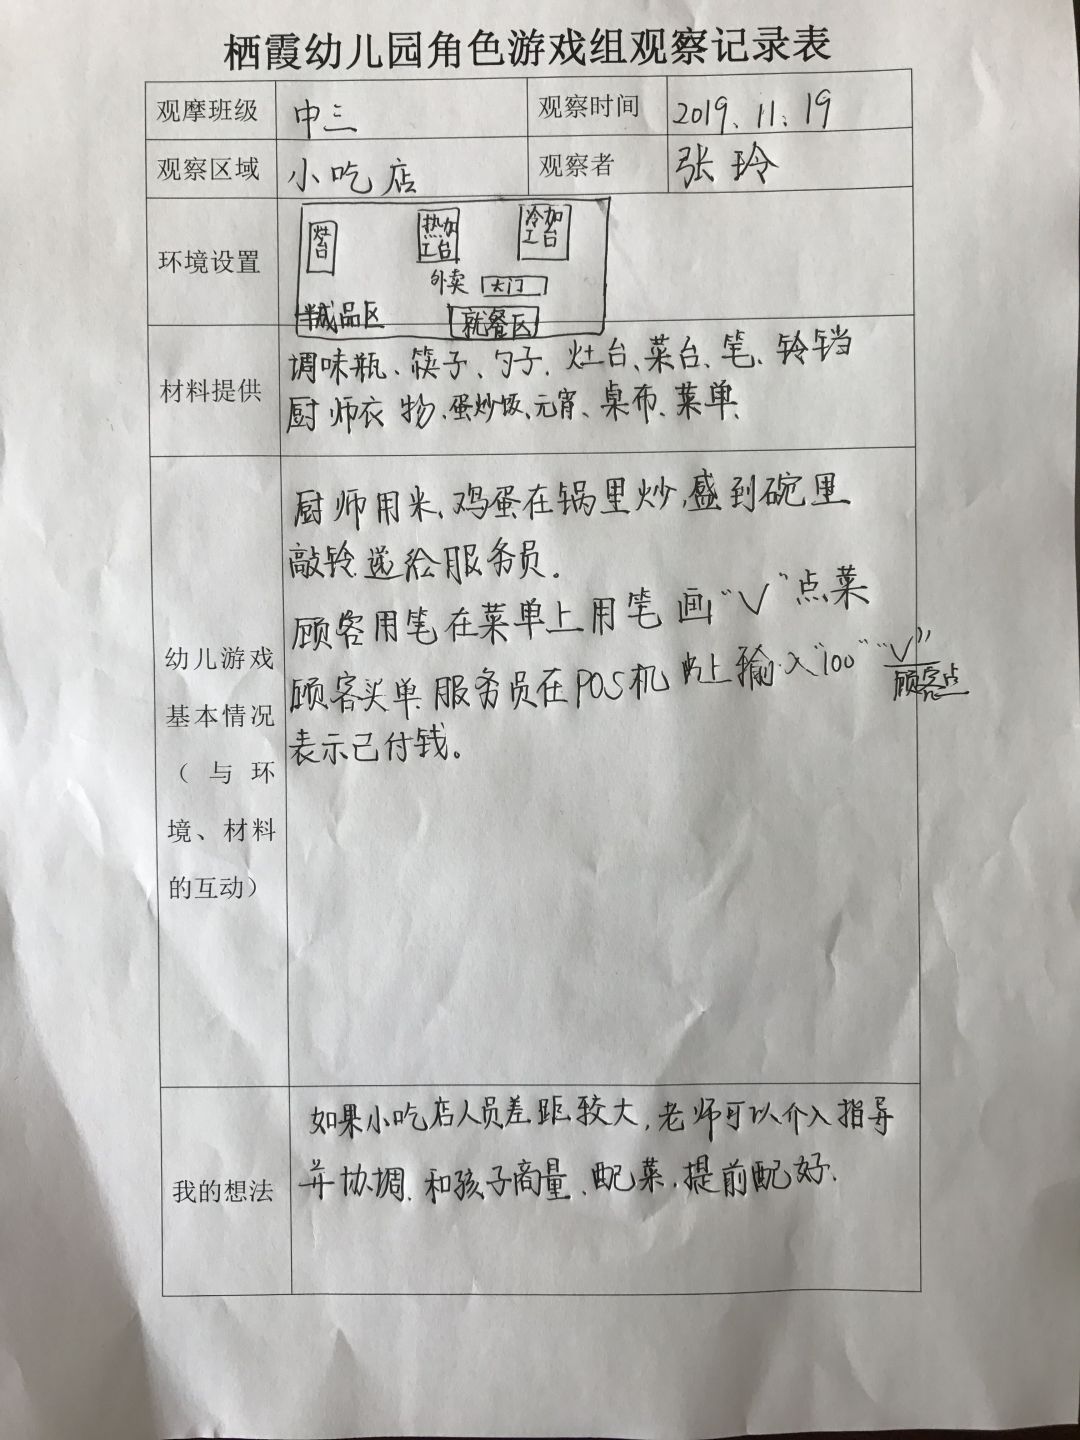 栖霞幼儿园角色游戏组观察记录表
观摩班级 中三 观察时间 2019、11、19
观察区域 小吃店 观察者 张玲
环境设置
灶台 热加工台 冷加工台
外卖 大门
半成品区 就餐区
材料提供
调味瓶、筷子、勺子、灶台、菜台、笔、铃铛
厨师衣物、蛋炒饭、元宵、桌布、菜单、
幼儿游戏
基本情况
（与环
境、材料
的互动）
厨师用米、鸡蛋在锅里炒,盛到碗里
敲铃递给服务员.
顾客用笔在菜单上用笔画“V”点菜
顾客买单 服务员在POS机 上输入“100”“V”
顾客点
表示已付钱。
我的想法
如果小吃店人员差距较大,老师可以介入指导
并协调、和孩子商量、配菜,提前配好.